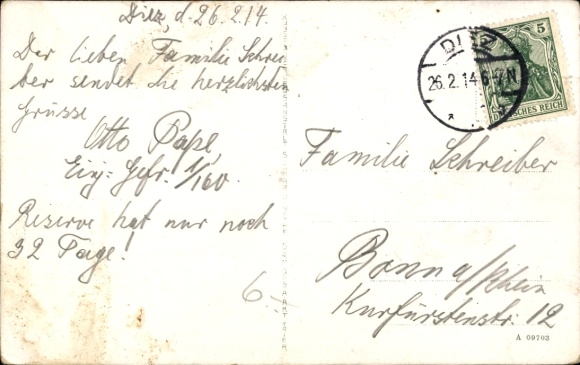 Diez, d. 26.2.14.
Der lieben Familie Schrei-
ber sendet die herzlichsten
Grüsse
Otto Pape,
Einj. Gefr. 1/160.
Reserve hat nur noch
32 Tage!
6-
DIEZ
26.2.14 6-7N
*
5
DEUTSCHES REICH
Familie Schreiber
Bonn a/Rhein
Kurfürstenstr. 12
A 09703